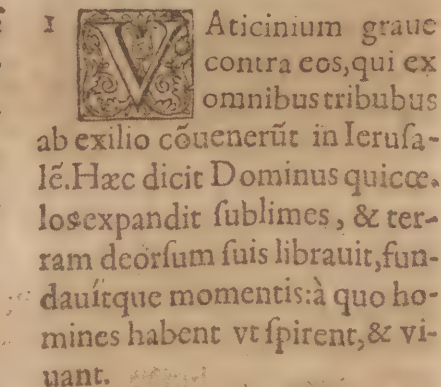 1 VAticinium graue
contra eos,qui ex
omnibus tribubus
ab exilio cõuenerũt in Ieruſa-
lẽ.Hæc dicit Dominus qui cœ-
los expandit ſublimes, & ter-
ram deorſum ſuis librauit,fun-
dauítque momentis:à quo ho-
mines habent vt ſpirent,& vi-
uant.